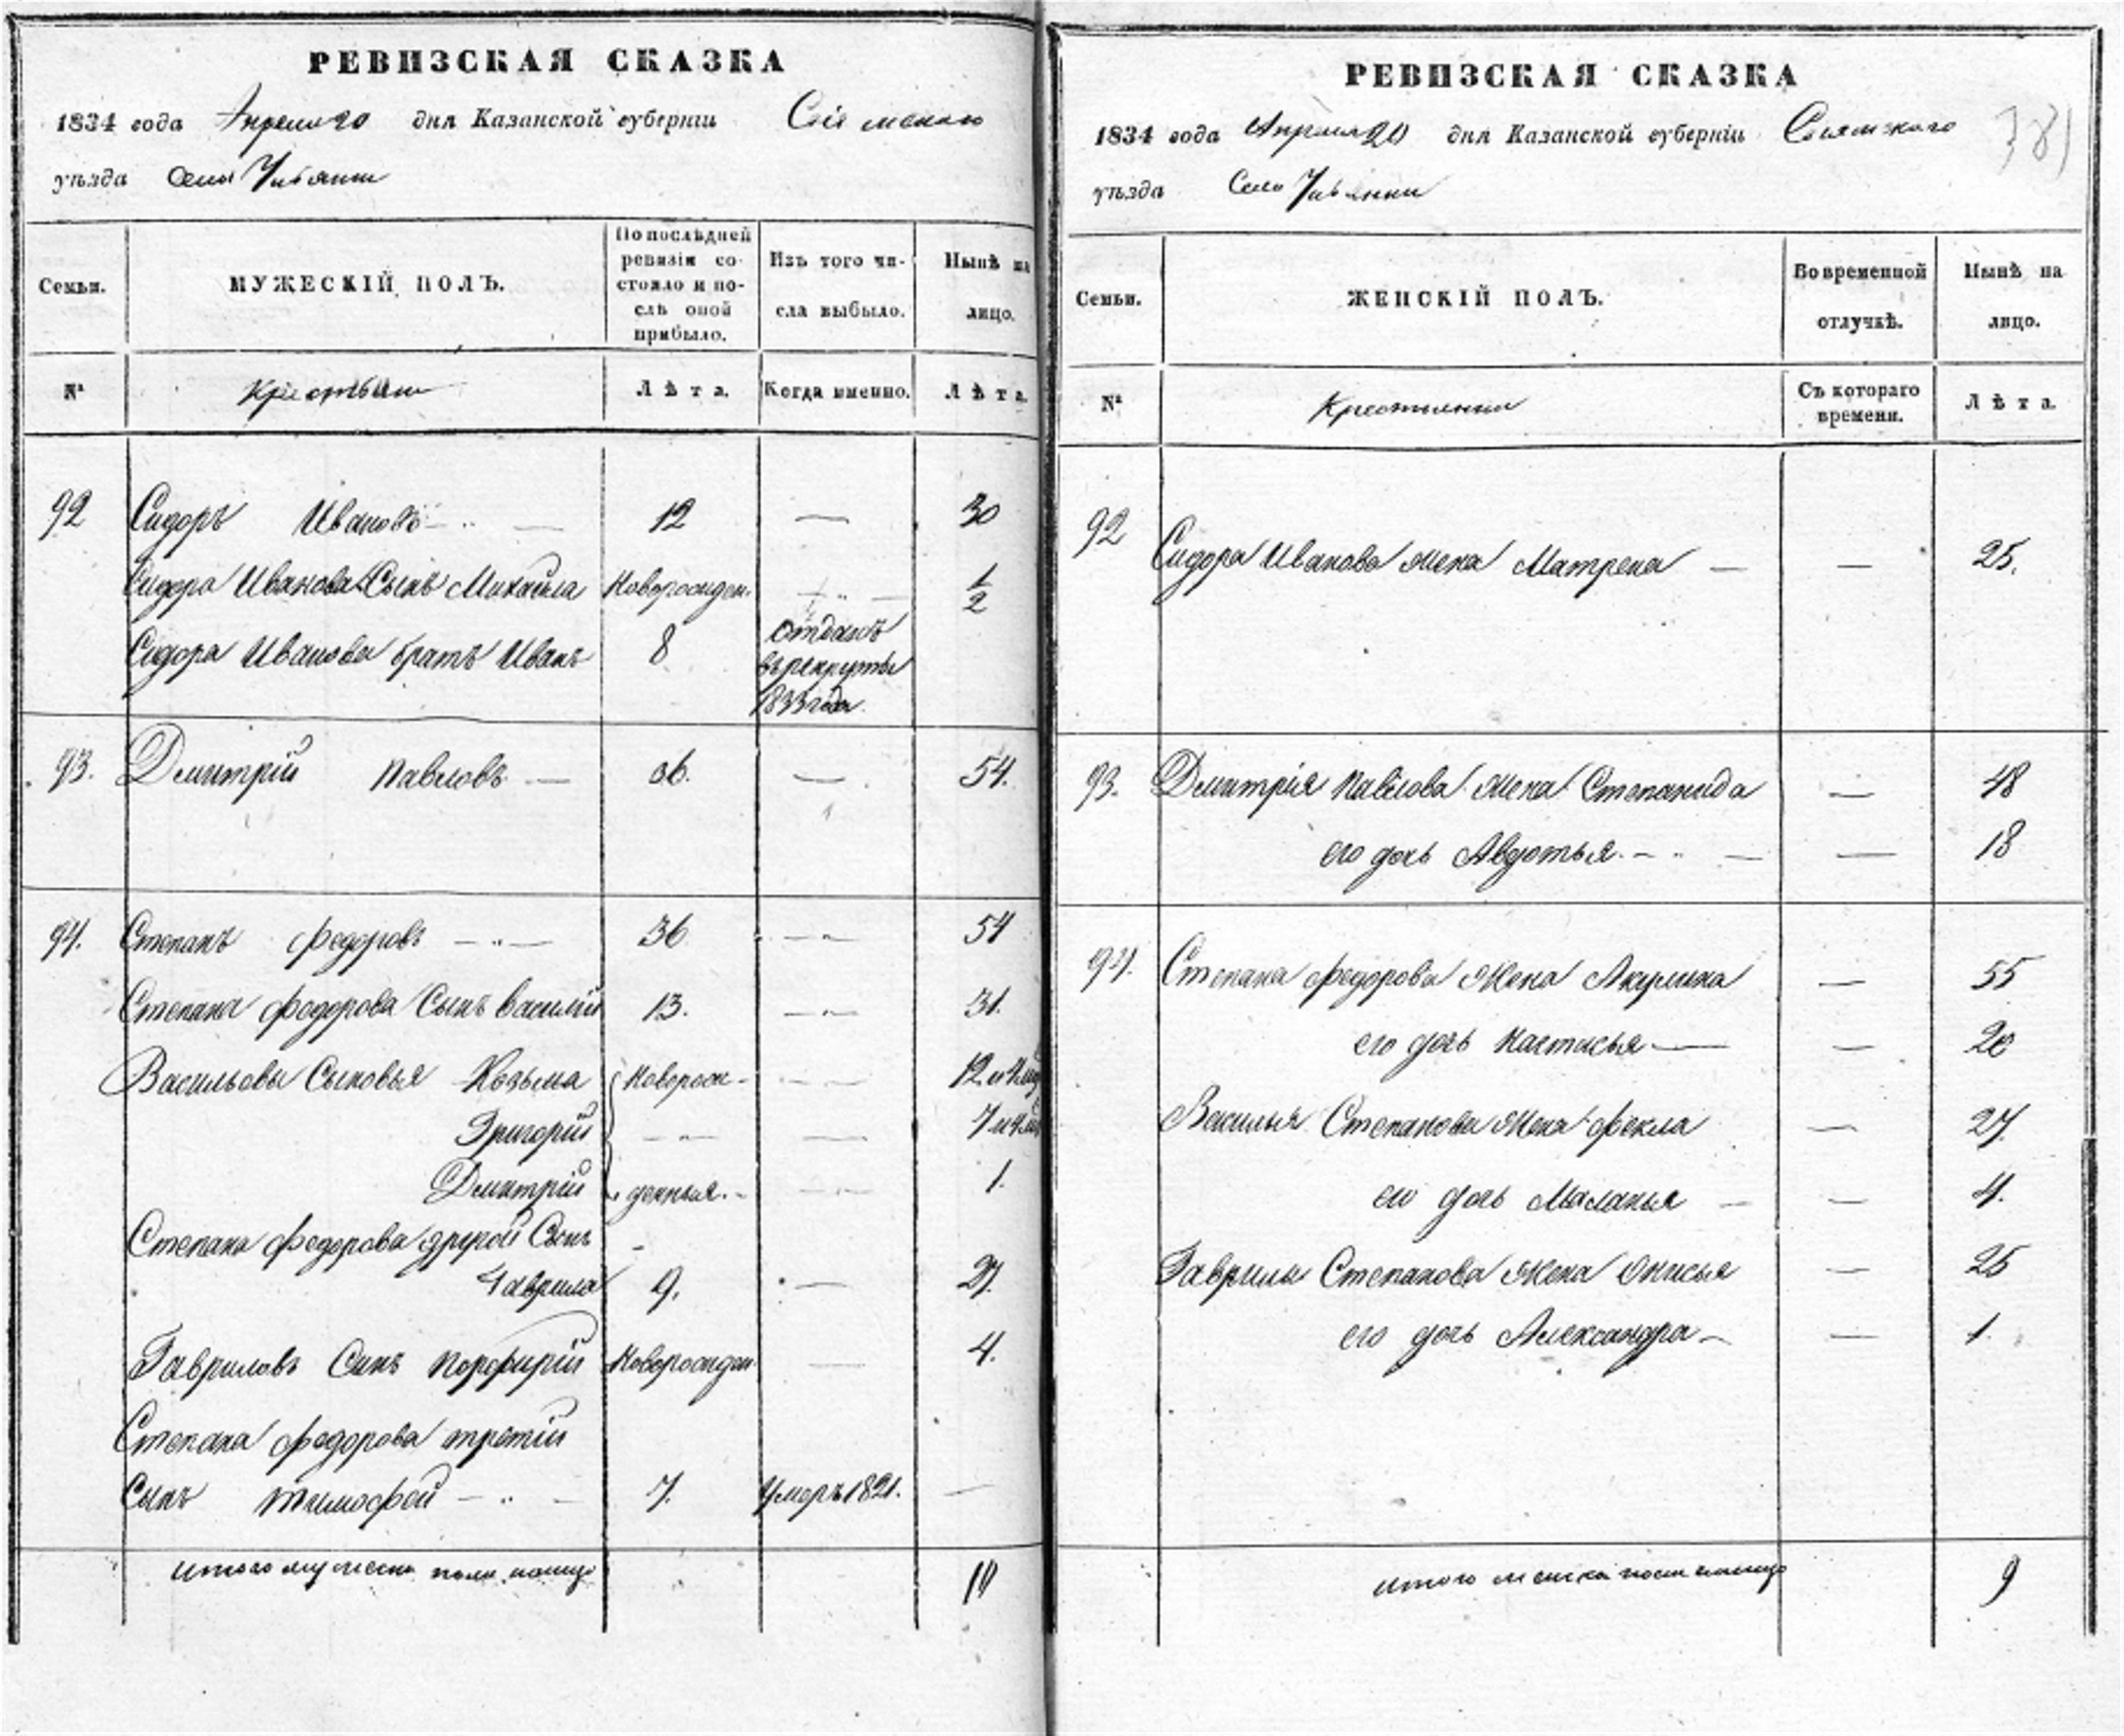 РЕВИЗСКАЯ СКАЗКА
1834 года Апреля 20 дня Казанской губерніи
уѣзда Села
Семьи.
МУЖЕСКІЙ ПОЛЪ.
По послѣдней
ревизіи со-
стояло и по-
слѣ оной
прибыло.
Изъ того чи-
сла выбыло.
Нынѣ на
лицо.
№
Крестьяне
Лѣта.
Когда именно.
Лѣта.
92 Сидоръ Ивановъ — 12 — 30
Сидора Иванова Сынъ Михайла Новорожден. — 1/2
Сидора Иванова братъ Иванъ 8 Отданъ
въ рекруты
1833 года
93. Дмитрій Павловъ — 36. — 54.
94. Степанъ Федоровъ — 36 — 54
Степана Федорова Сынъ Василій 13. — 31.
Васильевы Сыновья Козьма Новорож- — 12 и 4 мѣ
Григорій — — 7 и 4 мѣ
Дмитрій денныя. — 1.
Степана Федорова другой Сынъ
Гаврила 9. — 27.
Гавриловъ Сынъ Порфирій Новорожден — 4.
Степана Федорова третій
Сынъ Тимофей — 7. Умеръ 1821. —
Итого мужеска пола налицо
РЕВИЗСКАЯ СКАЗКА
1834 года Апреля 20 дня Казанской губерніи Свіяжскаго
уѣзда Села
381
Семьи.
ЖЕНСКІЙ ПОЛЪ.
Во временной
отлучкѣ.
Нынѣ на
лицо.
№
Крестьянки
Съ котораго
времени.
Лѣта.
92 Сидора Иванова Жена Матрена — — 25.
93. Дмитрія Павлова Жена Степанида — 48
его дочь Авдотья — — 18
94. Степана Федорова Жена Акулина — 55
его дочь Настасья — — 20
Василья Степанова Жена Фекла — 27.
его дочь Маланья — — 4.
Гаврилы Степанова Жена Онисья — 25
его дочь Александра — — 1.
Итого женска пола налицо 9